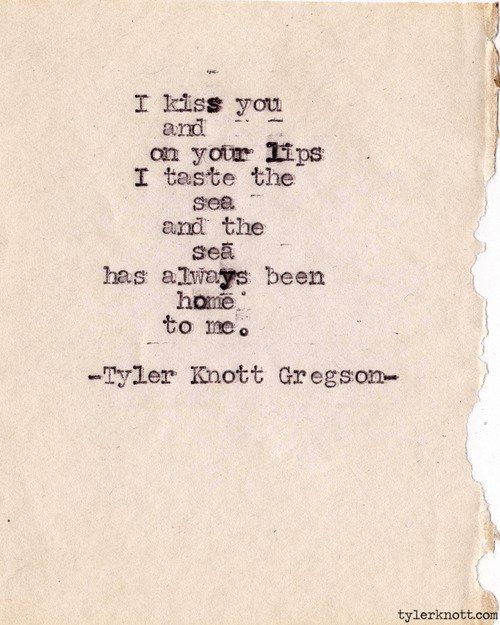 I kiss you
and
on your lips
I taste the
sea
and the
sea
has always been
home
to me.
-Tyler Knott Gregson-
tylerknott.com